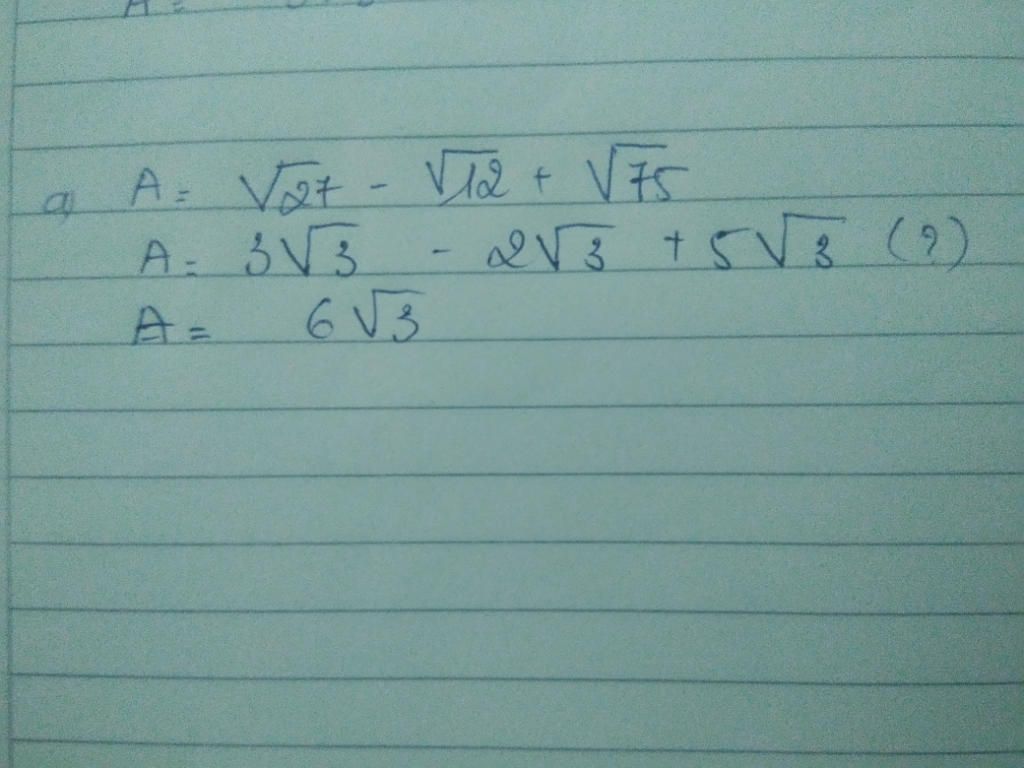 a) A = √27 - √12 + √75
A = 3√3 - 2√3 + 5√3 (?)
A = 6√3